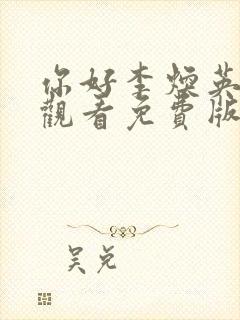 你好李焕英
觀看免費版
吴兑